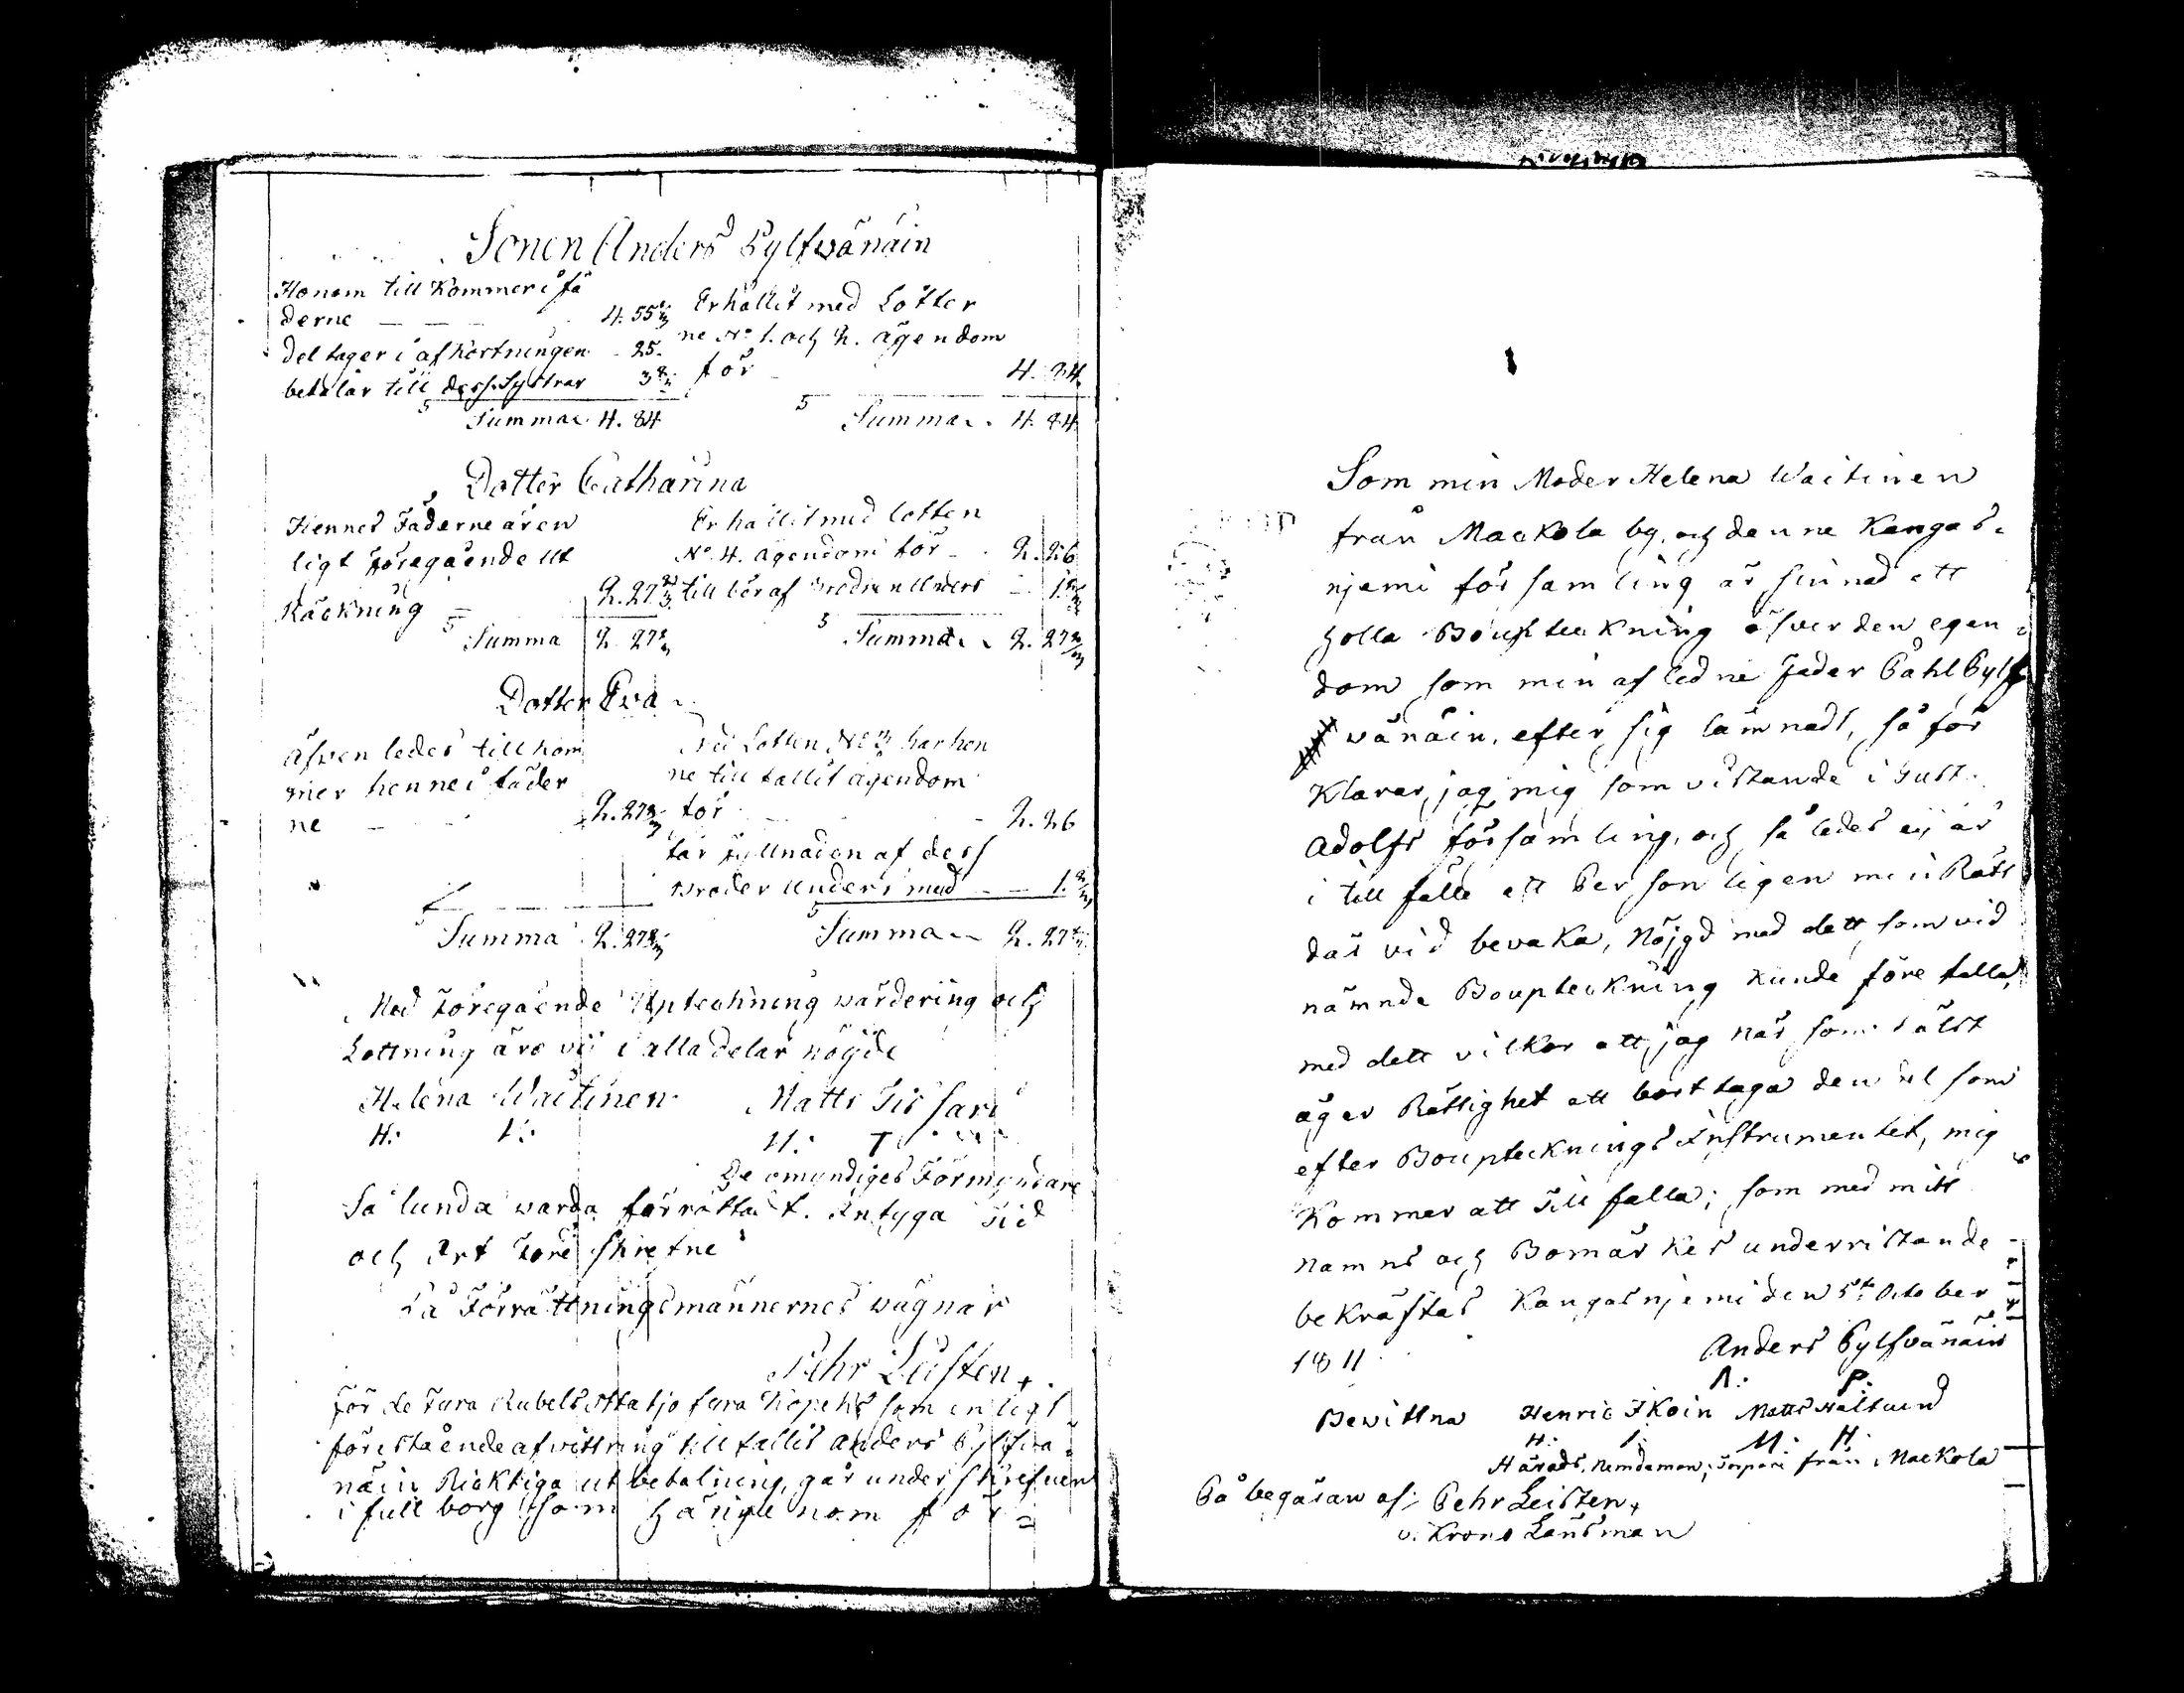 Sonen Anders Pylfvänäin
Honom till kommer i fä
derne — — 4. 55 2/3
del tager i afkortningen 25.
betalar till dess Systrar 3
Summa 4. 84
Erhållit med Lotter
ne No 1. och 2. ägendom
för 4. 84.
Summa 4. 84.
Dotter Catharina
Hennes Fäderne är en
ligt föregående Ut
Räckning — 2. 27 2/3
Summa 2. 27 2/3
Erhållit med lotten
No 4. ägendom för 2. 26
till bör af Brodren Anders 1 2/3
Summa 2. 27 2/3
Dotter Eva
äfven ledes till kom
mer henne i fäder
ne — 2. 27 2/3
Summa 2. 27 2/3
Med Lotten No 3 har hen
ne till fallit ägendom
för 2. 26
får fyllnaden af dess
Broder Anders med — 1. 2/3
Summa 2. 27 2/3
Med Föregående Uptechning wärdering och
Lottning äro vi i alla delar nöjde
Helena Waitinen Matts Tissari
H: W: M: T:
De omyndiges Förmyndare
Så lunda warda förrättat. Intyga Tid
och Ort före skrefne
På Förrättningsmännernes wägnar
Pehr Leisten
För de Fyra Rubels Ottatjo fyra Kopeks som enligt
förestående afvittring till fallit Anders Pylfvä-
näin Ricktiga ut betalning, går under skrefven
i full borg som härigenom för=
Som min Moder Helena Waitinen
från Mackola by, och denne Kangas-
njemi församling är sinnad att
holla Boupteckning öfver den egen-
dom som min afledne Fader Påhl Pylf
vänäin, efter sig lämnadt, så för
Klarar jag mig som vistande i Gust.
Adolfs församling, och således ej är
i till fälle att Personligen min Rätt
där vid bevaka, Nöjgd med dett som vid
nämnde Boupteckning kunde före falla,
med dett vilkor att jag När som hälst
äger Rättighet att bort taga den del som
efter Boupteknings Instrumentet, mig
Kommer att Till falla; som med mitt
Namns och Bomärkes underristande
bekräftas Kangasnjemi den 5te October
1811
Anders Pylfvänäin
A: P:
Bewittna Henric Ikoin Matts Haltuin
H: I: M: H:
Härads Nemdeman, från Mackola
På begäran af: Pehr Leisten
v. Krono Länsman